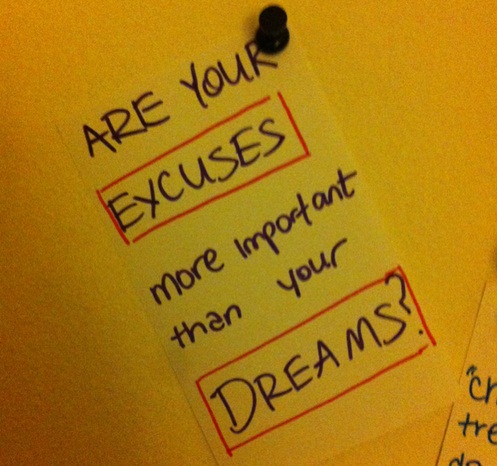 ARE YOUR
EXCUSES
more important
than your
DREAMS?